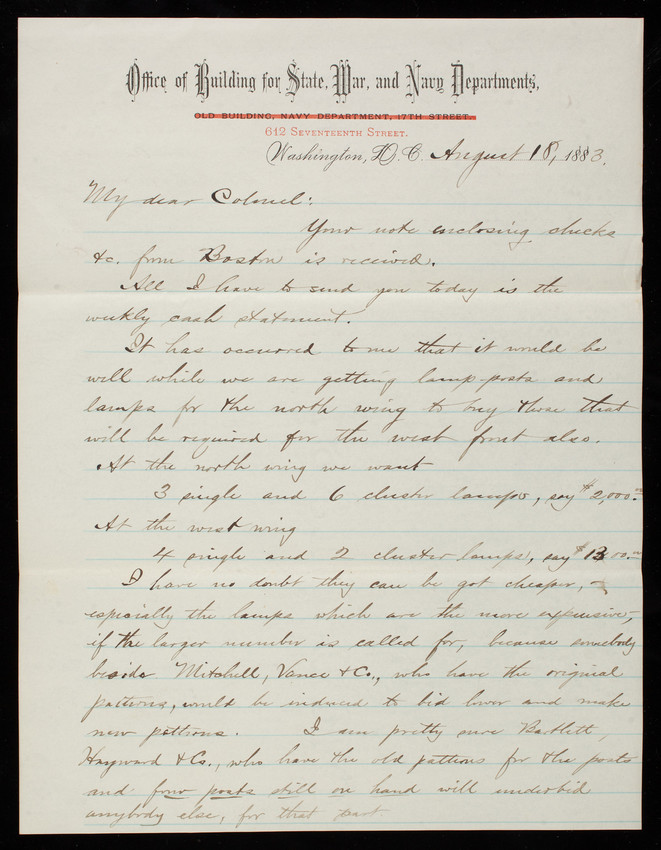 Office of Building for State, War, and Navy Departments,
OLD BUILDING, NAVY DEPARTMENT, 17TH STREET.
612 SEVENTEENTH STREET.
Washington, D.C. August 18, 1883.
My dear Colonel:
Your note enclosing checks
&c. from Boston is received.
All I have to send you today is the
weekly cash statement.
It has occurred to me that it would be
well while we are getting lamp-posts and
lamps for the north wing to buy those that
will be required for the west front also.
At the north wing we want
3 single and 6 cluster lamps, say $2,000.
At the west wing
4 single and 2 cluster lamps, say $1300.
I have no doubt they can be got cheaper, &
especially the lamps which are the more expensive,
if the larger number is called for, because somebody
beside Mitchell, Vance & Co., who have the original
patterns, would be induced to bid lower and make
new patterns. I am pretty sure Bartlett,
Hayward & Co., who have the old patterns for the posts
and four posts still on hand will underbid
anybody else, for that part.